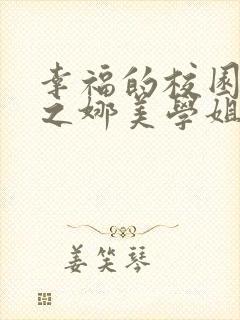 幸福的校園
之娜美學姐
姜笑琴